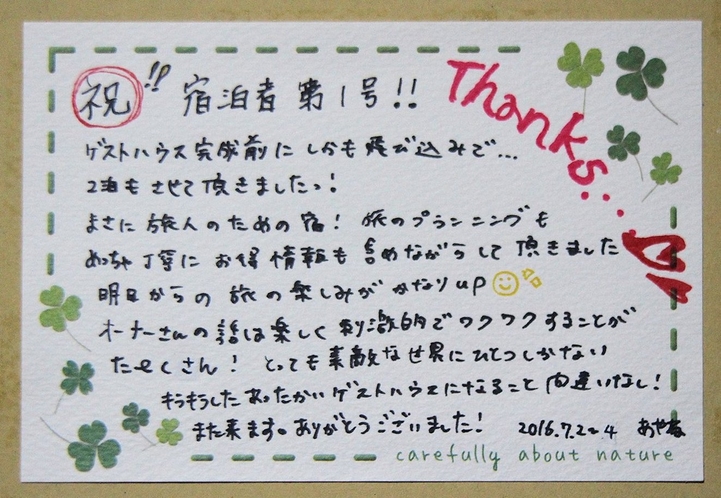 祝!! 宿泊者 第1号!!
Thanks...
ゲストハウス完成前に しかも 飛び込みで...
2泊も させて 頂きましたっ!
まさに 旅人のための 宿! 旅のプランニングも
めっちゃ 丁寧に お得 情報も 含めながらして 頂きました
明日からの 旅の楽しみが かなりup
オーナーさんの 話は楽しく 刺激的で ワクワクすることが
たくさん! とっても 素敵な 世界に ひとつしかない
キラキラした あったかい ゲストハウスになること 間違いなし!
また来ます。ありがとうございました! 2016.7.2~4
carefully about nature